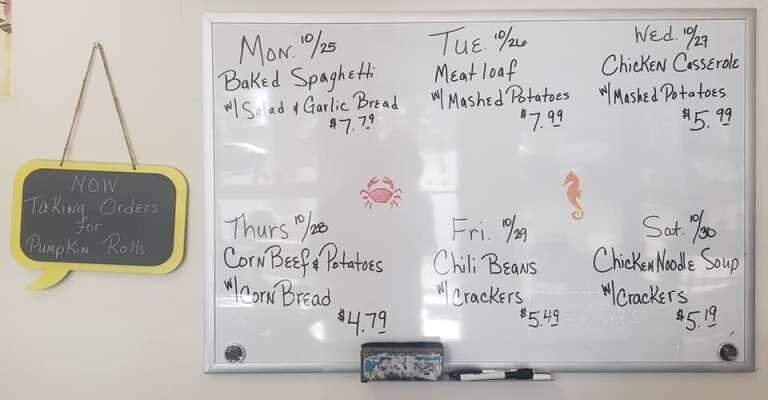 NOW
Taking Orders
for
Pumpkin Rolls
Mon. 10/25
Baked Spaghetti
w/ Salad & Garlic Bread
$7.79
Tue. 10/26
Meatloaf
w/ Mashed Potatoes
$7.99
Wed. 10/27
Chicken Casserole
w/ Mashed Potatoes
$5.99
Thurs 10/28
Corn Beef & Potatoes
w/ Corn Bread
$4.79
Fri. 10/29
Chili Beans
w/ Crackers
$5.49
Sat. 10/30
Chicken Noodle Soup
w/ Crackers
$5.19